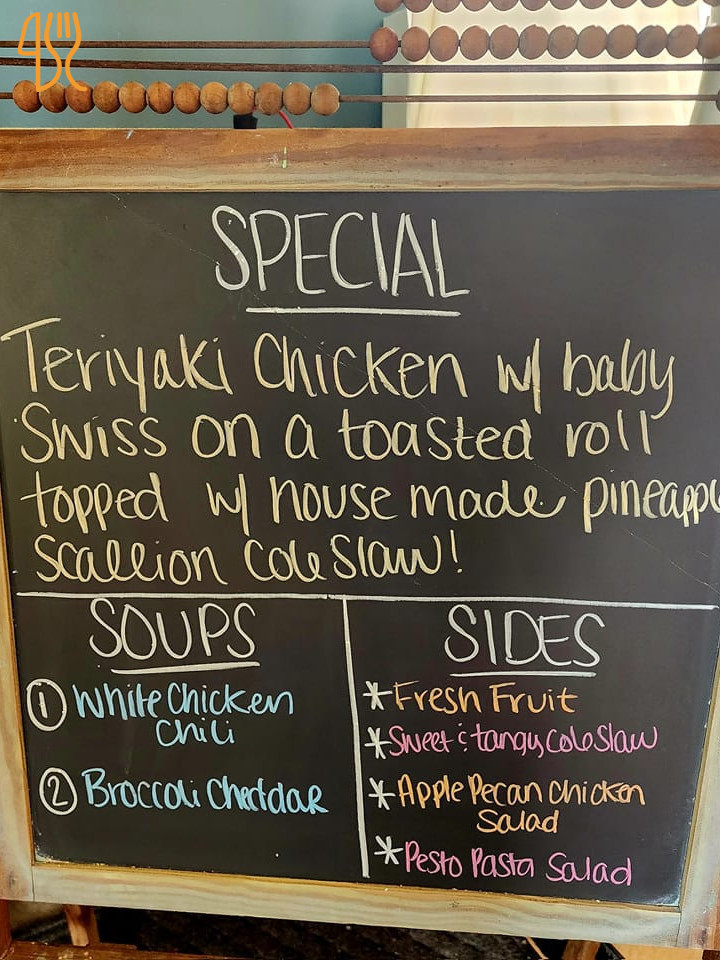 SPECIAL
Teriyaki Chicken w/ baby
Swiss on a toasted roll
topped w/ house made pineapple
Scallion Cole Slaw!
SOUPS
1 White Chicken
Chili
2 Broccoli Cheddar
SIDES
* Fresh Fruit
* Sweet & tangy Cole Slaw
* Apple Pecan Chicken
Salad
* Pesto Pasta Salad